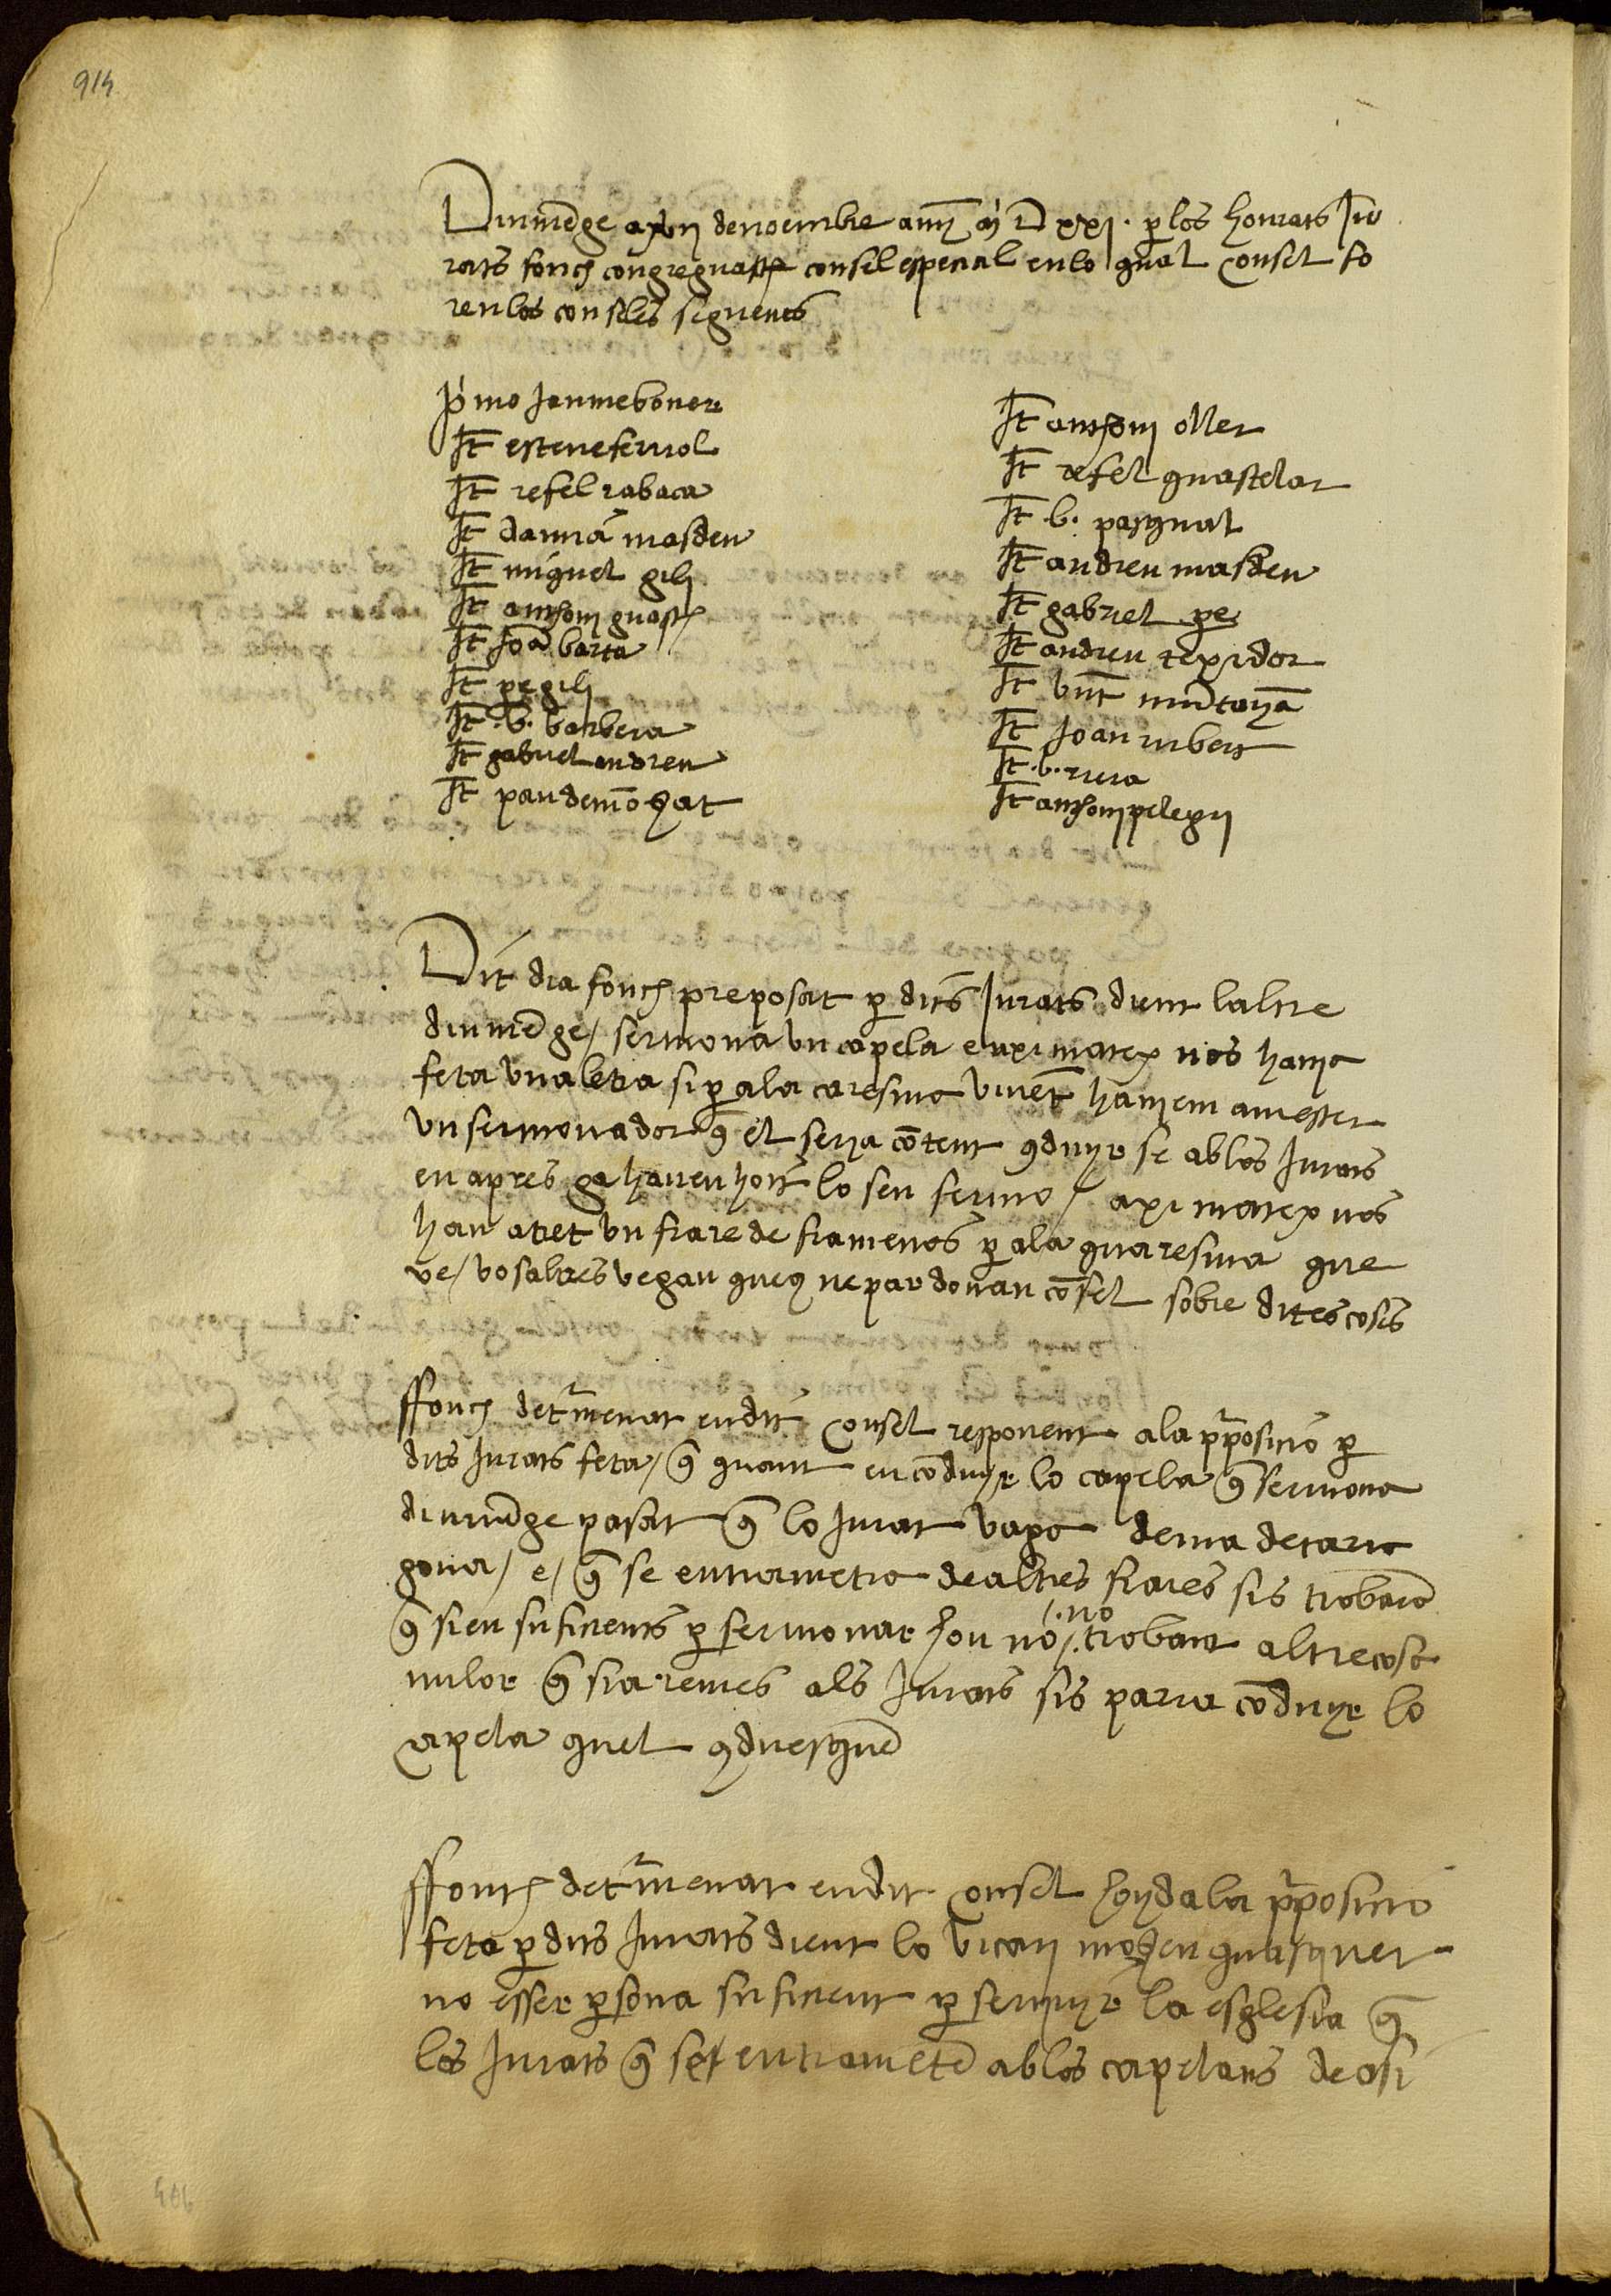 914
Diumẽge a xvii de noembre any M D xxi. per los honrats Ju
rats fonch congreguat consel especial en lo qual consel fo
ren los conseles seguents
Pºmo Jaume boner
It esteve ferriol
It refel rabaca
It damiã masdeu
It miquel gili
It anthoni guasch
It Joã barta
It pe gili
It .b. barbera
It gabriel andreu
It pau de mõtzat
It anthoni oller
It refel quastelar
It .b. pasqual
It andreu masdeu
It gabriel pe
It andreu texidor
It vint mũtayã
It Joan rubert
It .b. riera
It anthoni pelegri
Dit dia fonch preposat p dits Jurats dient laltre
diumẽge / sermona un capela e axi matex nos hauja
feta una letra si p a la caresma vinẽt haujem a mester
un sermonador q̃ el serja cõtent 9duyr se ab los Jurats
en apres ga haveu hoit lo seu sermo / axi matex nos
hau atret un frare de framenos p a la quaresma que
ve / vosaltres vegau queus ne par donau cõsel sobre dites coses
ffonch det̃menat en dit consel responent a la p̃posicio p
dits Jurats feta / q̃ quant en cõduyr lo capela q̃ sermona
diumẽge pasat q̃ lo Jurat vage dema de tarra
gona / e / q̃ se entrametra de altres frares sis trobarã
q̃ sien suficients p sermonar hon no /. no trobant altre cosa
milor q̃ sia remes als Jurats sis parra cõduyr lo
capela quel 9duesquẽ
ffonch det̃menat en dit consel hoyda la p̃posicio
feta p dits Jurats dient lo vicari mosen guasquer
no esser psona suficient p servyr la esglesia q̃
los Jurats q̃ set entrametẽ ab los capelans de asi
406